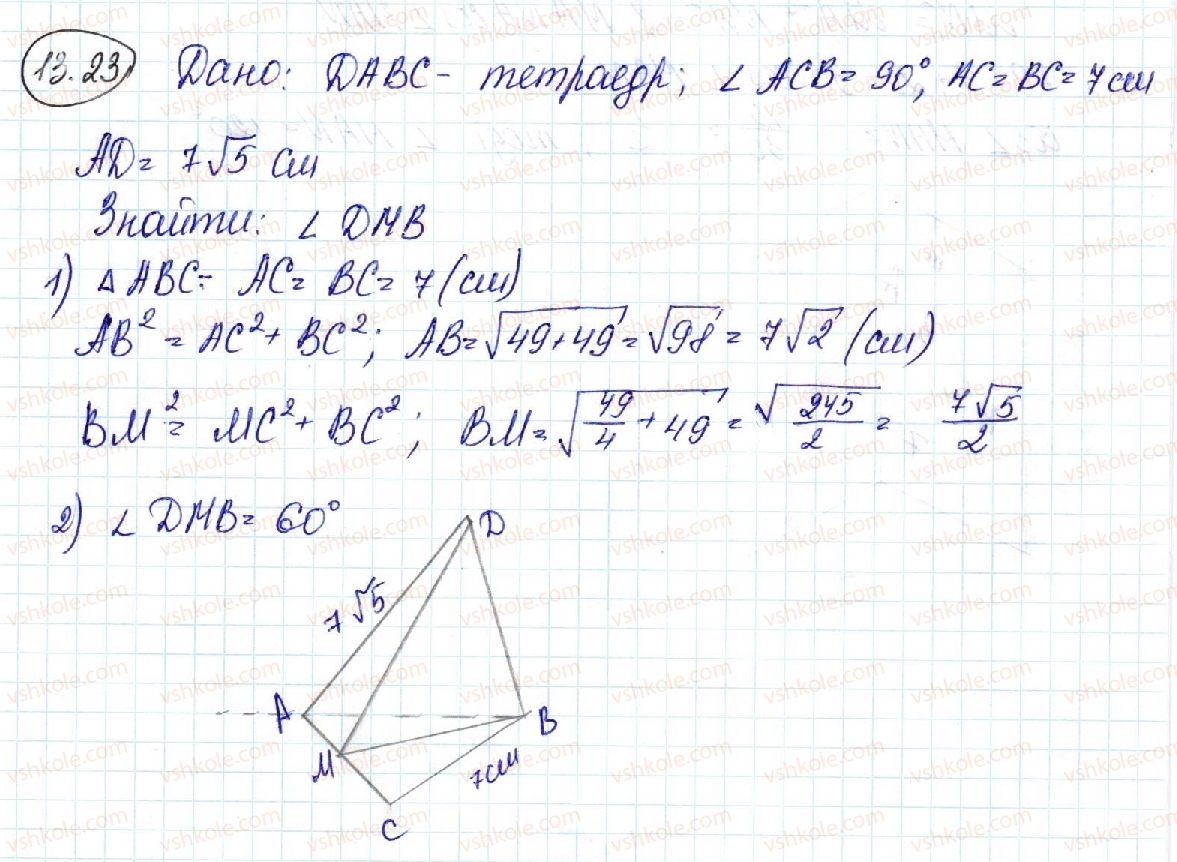 13.23 Дано: DABC - тетраедр; ∠ ACB = 90°, AC = BC = 7 см
AD = 7√5 см
Знайти: ∠ DMB
1) △ ABC - AC = BC = 7 (см)
AB² = AC² + BC²; AB = √49+49 = √98 = 7√2 (см)
BM² = MC² + BC²; BM = √49/4 + 49 = √245/2 = 7√5/2
2) ∠ DMB = 60°
D
7√5
A
B
M
7см
C